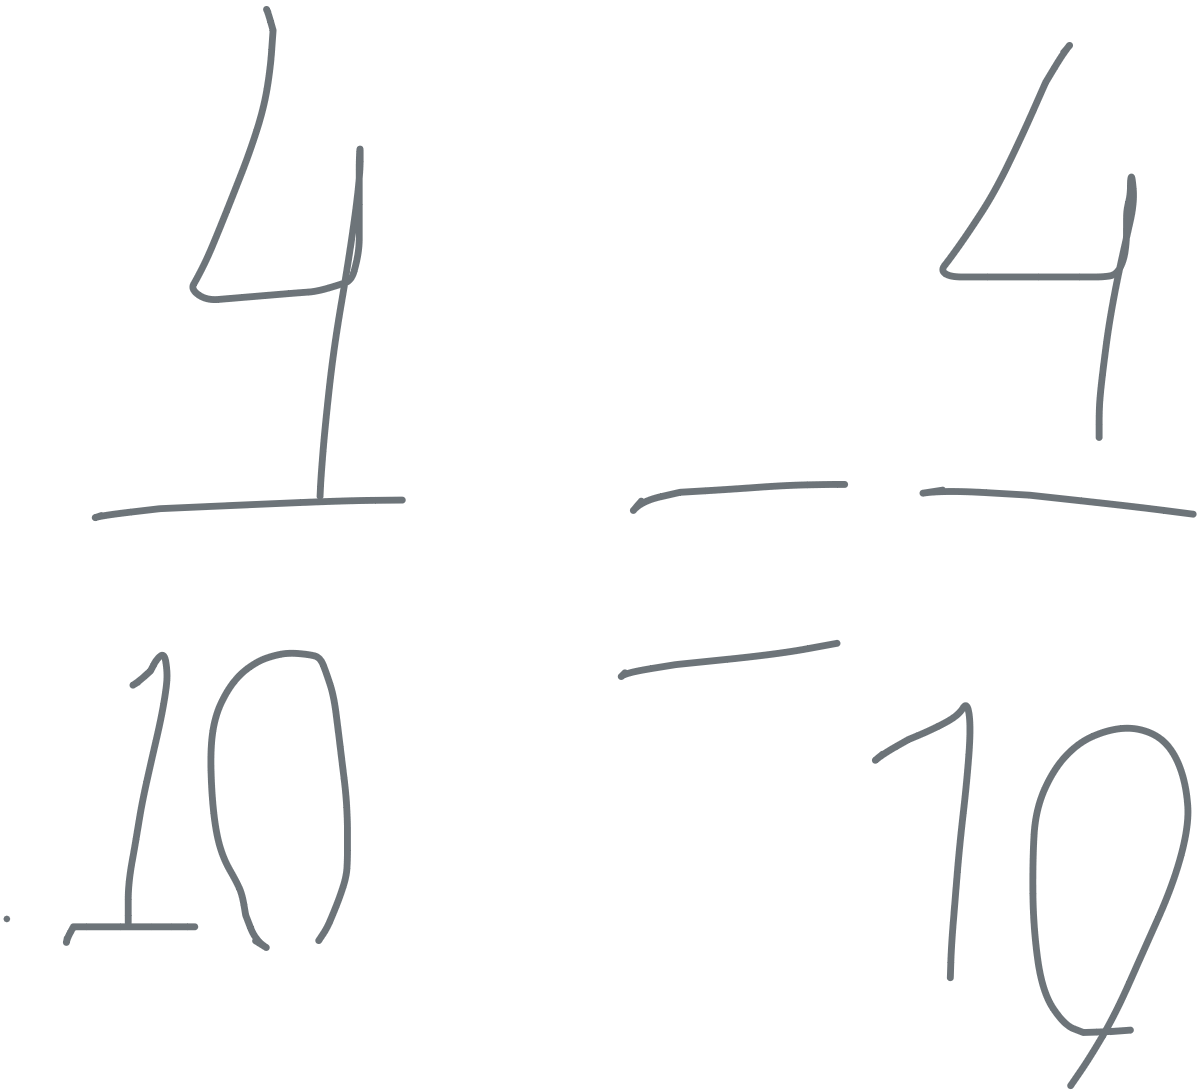 4/10 = 4/10